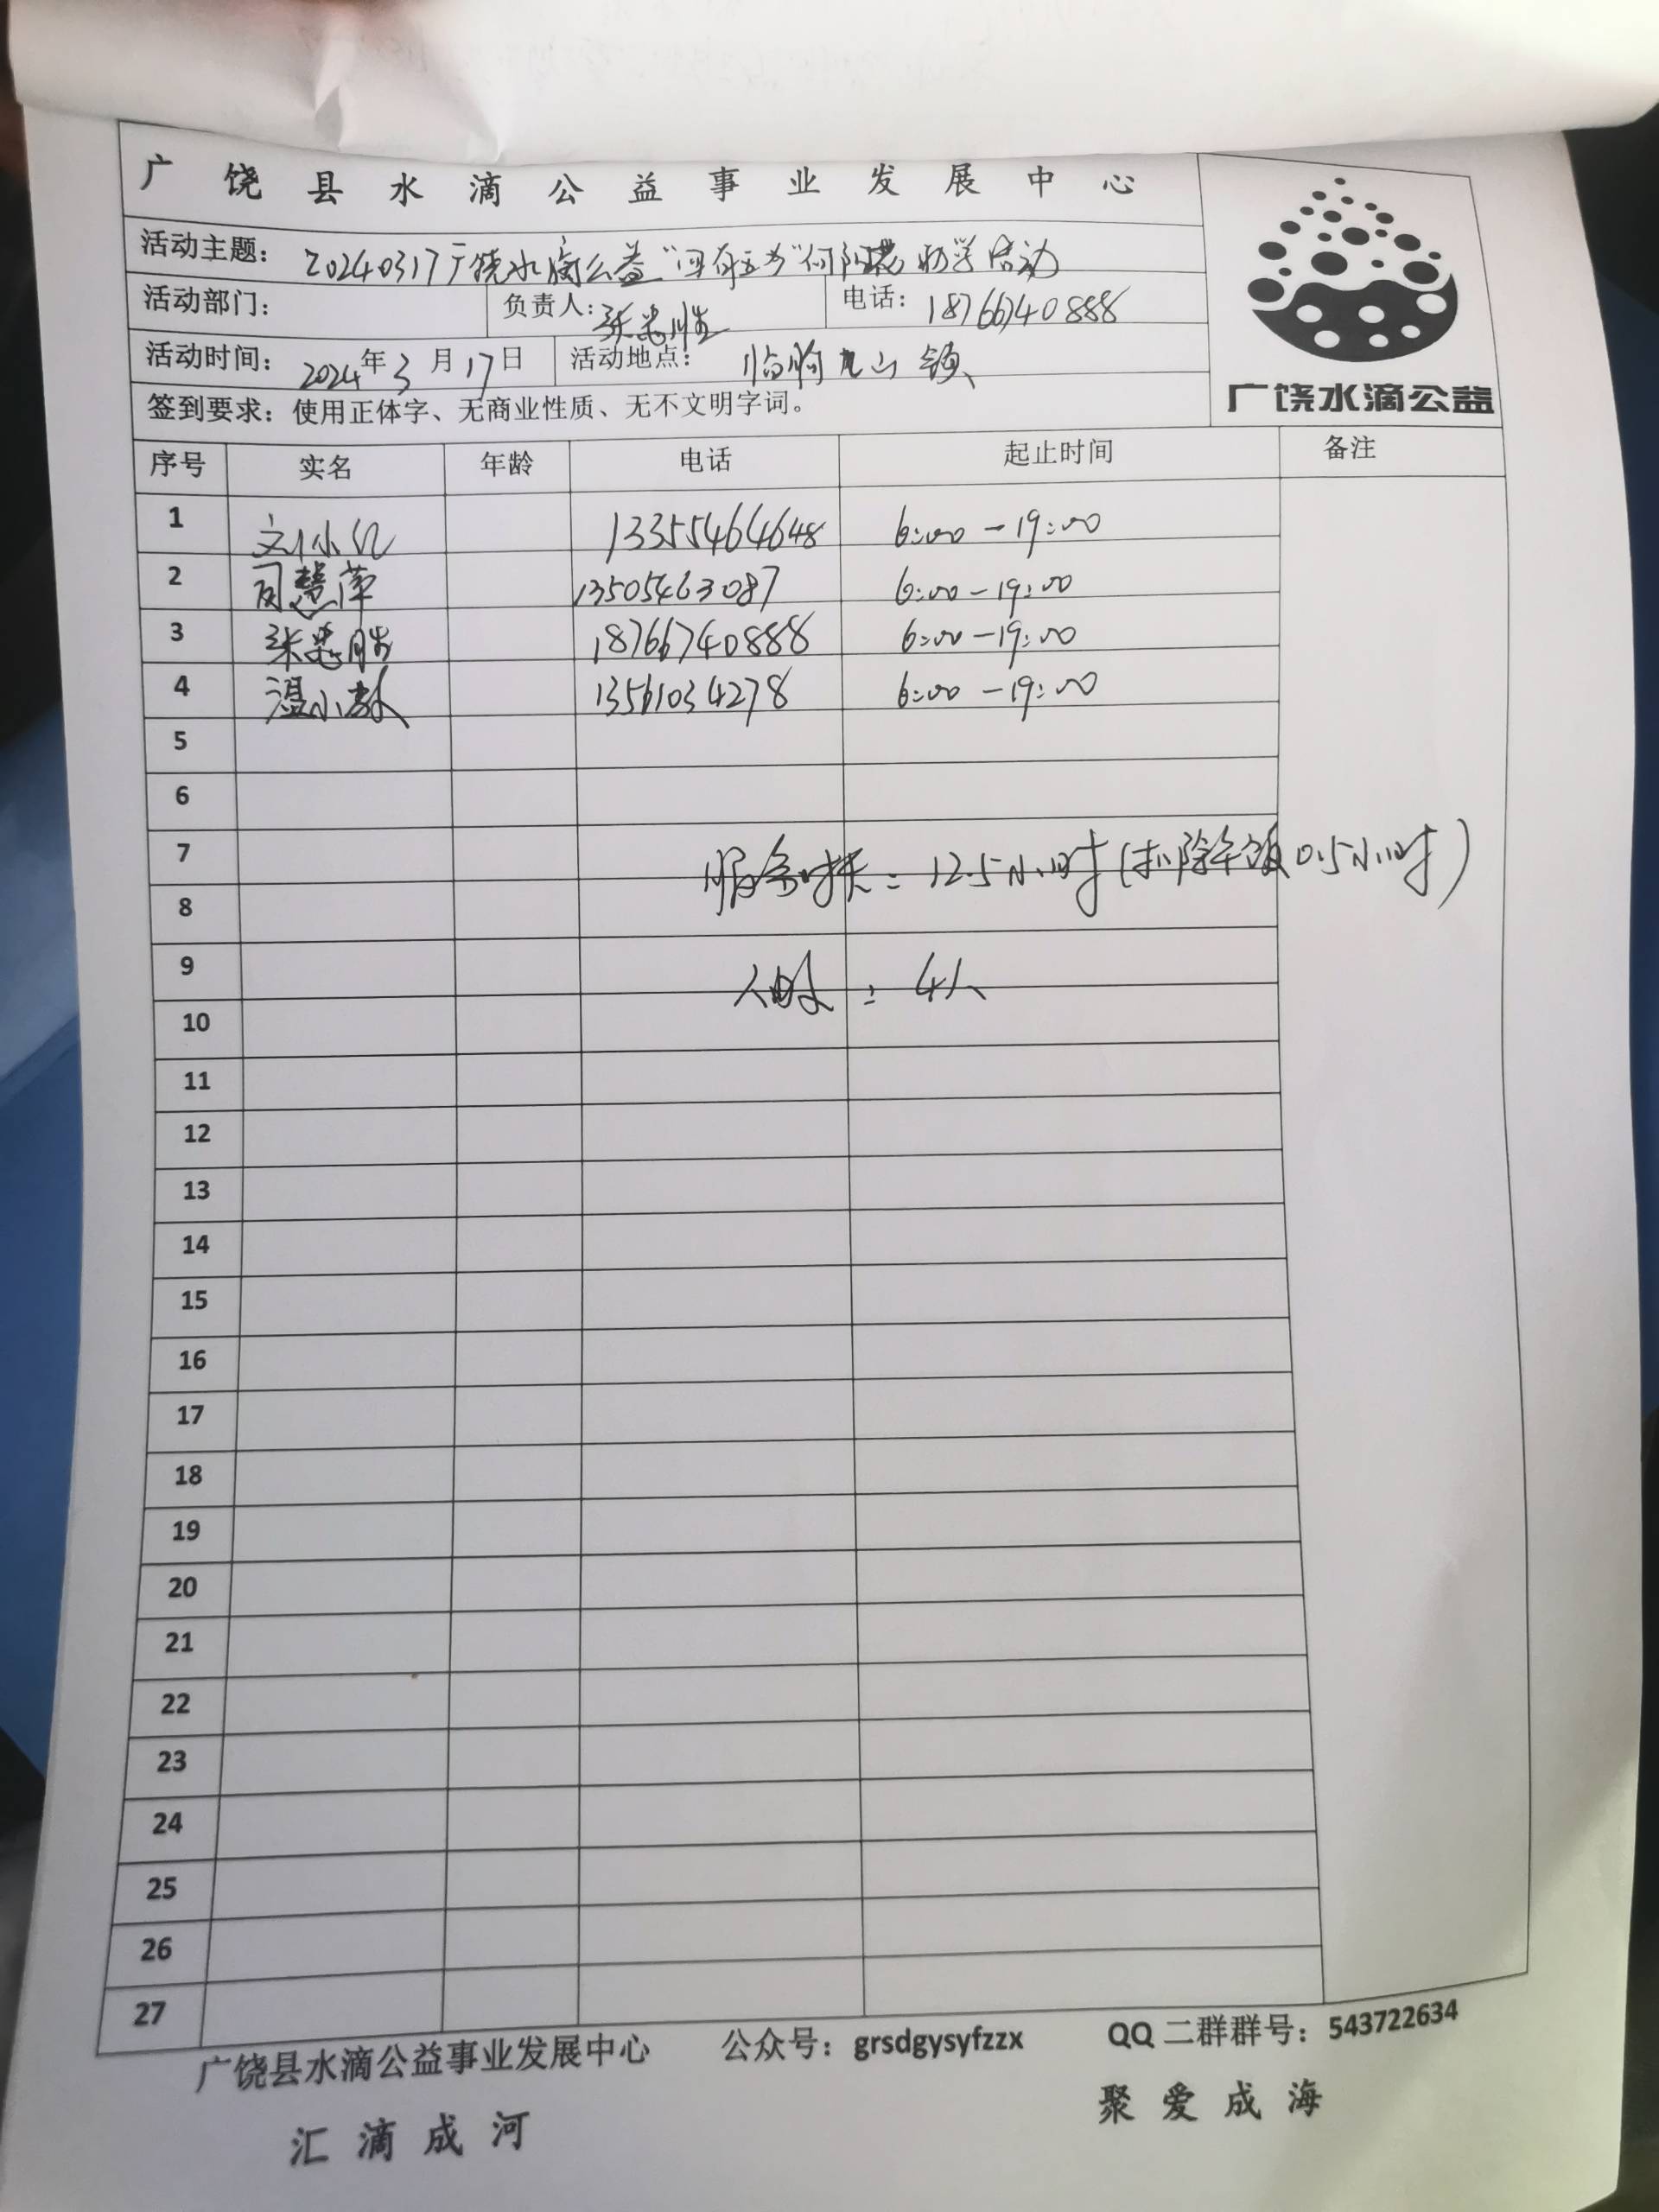 广饶县水滴公益事业发展中心
活动主题： 20240317广饶水滴公益 助学活动
活动部门： 负责人：张忠胜 电话：18766740888
活动时间：2024年3月17日 活动地点：临朐 山镇
广饶水滴公益
签到要求：使用正体字、无商业性质、无不文明字词。
序号 实名 年龄 电话 起止时间 备注
1 刘小 13355464648 6:00-19:00
2 慧萍 13505463087 6:00-19:00
3 张忠胜 18766740888 6:00-19:00
4 温小 13561034278 6:00-19:00
5
6
7
服务时长：12.5小时(扣除午饭0.5小时)
8
9
人数：4人
10
11
12
13
14
15
16
17
18
19
20
21
22
23
24
25
26
27
广饶县水滴公益事业发展中心 公众号：grsdgysyfzzx QQ二群群号：543722634
汇滴成河 聚爱成海